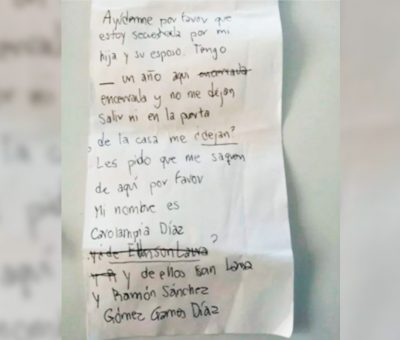 Ayúdenme por favor que
estoy secuestrada por mi
hija y su esposo. Tengo
_ un año aqui encerrada
encerrada y no me dejan
salir ni en la puerta
de la casa me ¿dejan?
Les pido que me saquen
de aquí por favor
Mi nombre es
Carolampia Díaz
y de ellos son Laura ?
y de ellos son Laura
y Ramón Sánchez
Gómez Gamos Díaz